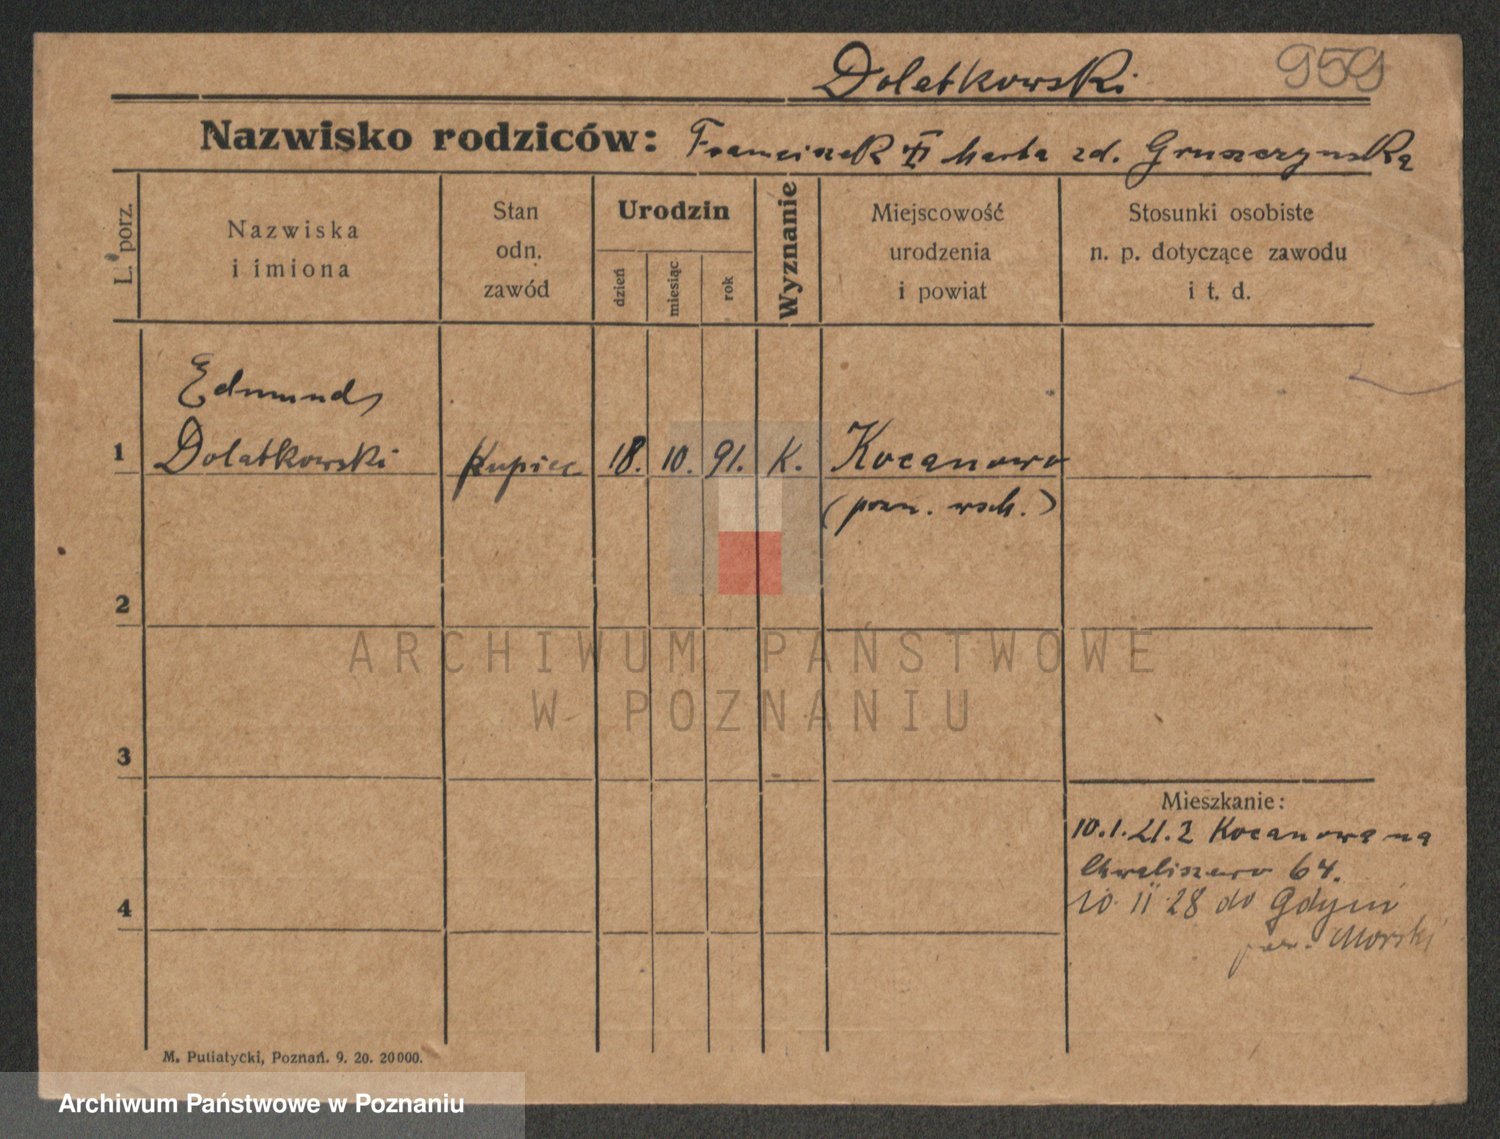 Dolatkowski 959
Nazwisko rodziców: Franciszek i Marta zd. Gruszczynska
L. porz.
Nazwiska
i imiona
Stan
odn.
zawód
Urodzin
dzień
miesiąc
rok
Wyznanie
Miejscowość
urodzenia
i powiat
Stosunki osobiste
n. p. dotyczące zawodu
i t. d.
Edmund
1 Dolatkowski Kupiec 18. 10. 91. K. Kocanowo
(pozn. wsch.)
2
3
4
Mieszkanie:
10.1.21. z Kocanowa na
Chwaliszewo 64.
10 II 28 do Gdyni
pow. Morski
M. Putiatycki, Poznań. 9. 20. 20000.
ARCHIWUM PAŃSTWOWE
W POZNANIU
Archiwum Państwowe w Poznaniu